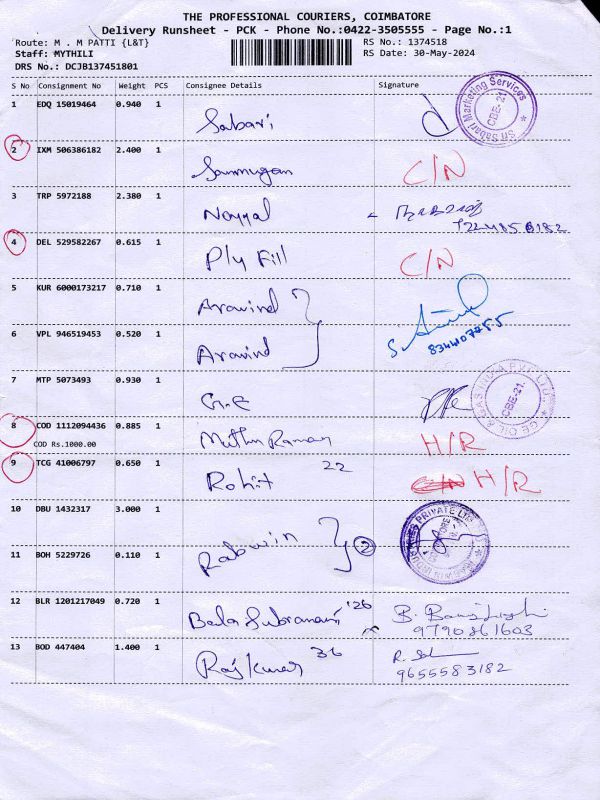 THE PROFESSIONAL COURIERS, COIMBATORE
Delivery Runsheet - PCK - Phone No.:0422-3505555 - Page No.:1
Route: M . M PATTI {L&T} RS No.: 1374518
Staff: MYTHILI RS Date: 30-May-2024
DRS No.: DCJB137451801
S No Consignment No Weight PCS Consignee Details Signature
1 EDQ 15019464 0.940 1 Sabari Sri Sabari Marketing Services CBE-21.
2 IXM 506386182 2.400 1 Sanmugam C/N
3 TRP 5972188 2.380 1 Noyyal
4 DEL 529582267 0.615 1 Ply Fill C/N
5 KUR 6000173217 0.710 1 Aravind
6 VPL 946519453 0.520 1 Aravind
7 MTP 5073493 0.930 1 G.E CBE-21.
8 COD 1112094436 0.885 1 Muthu Raman H/R
COD Rs.1000.00
9 TCG 41006797 0.650 1 Rohit 22 C/N H/R
10 DBU 1432317 3.000 1
11 BOH 5229726 0.110 1 Rabwin 2
12 BLR 1201217049 0.720 1 Bala Subramani '26 9790861603
13 BOD 447404 1.400 1 Raj Kumar 36 9655583182